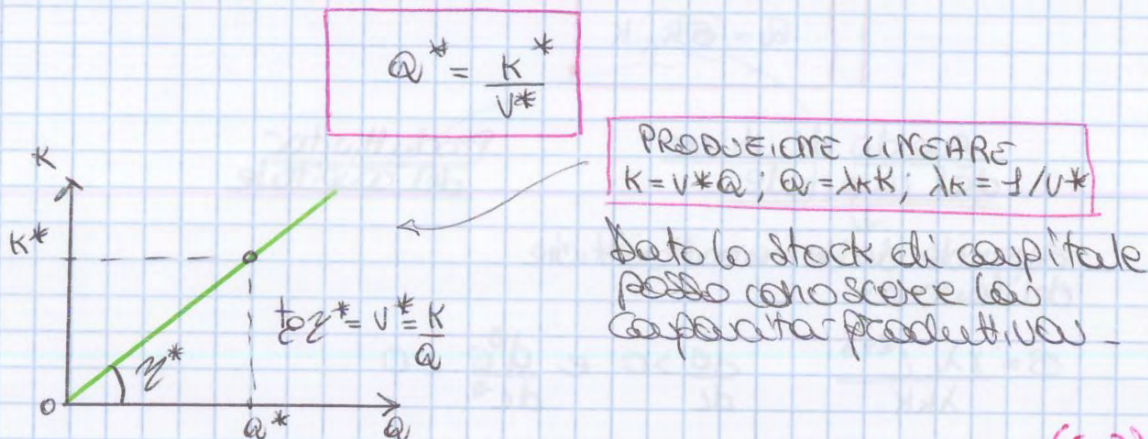 Q* = K* / V*
PRODUZIONE LINEARE
K = V*Q; Q = λK K; λK = 1/V*
Dato lo stock di capitale
posso conoscere la
capacità produttiva
K
K*
tg η* = V* = K/Q
η*
0
Q*
Q